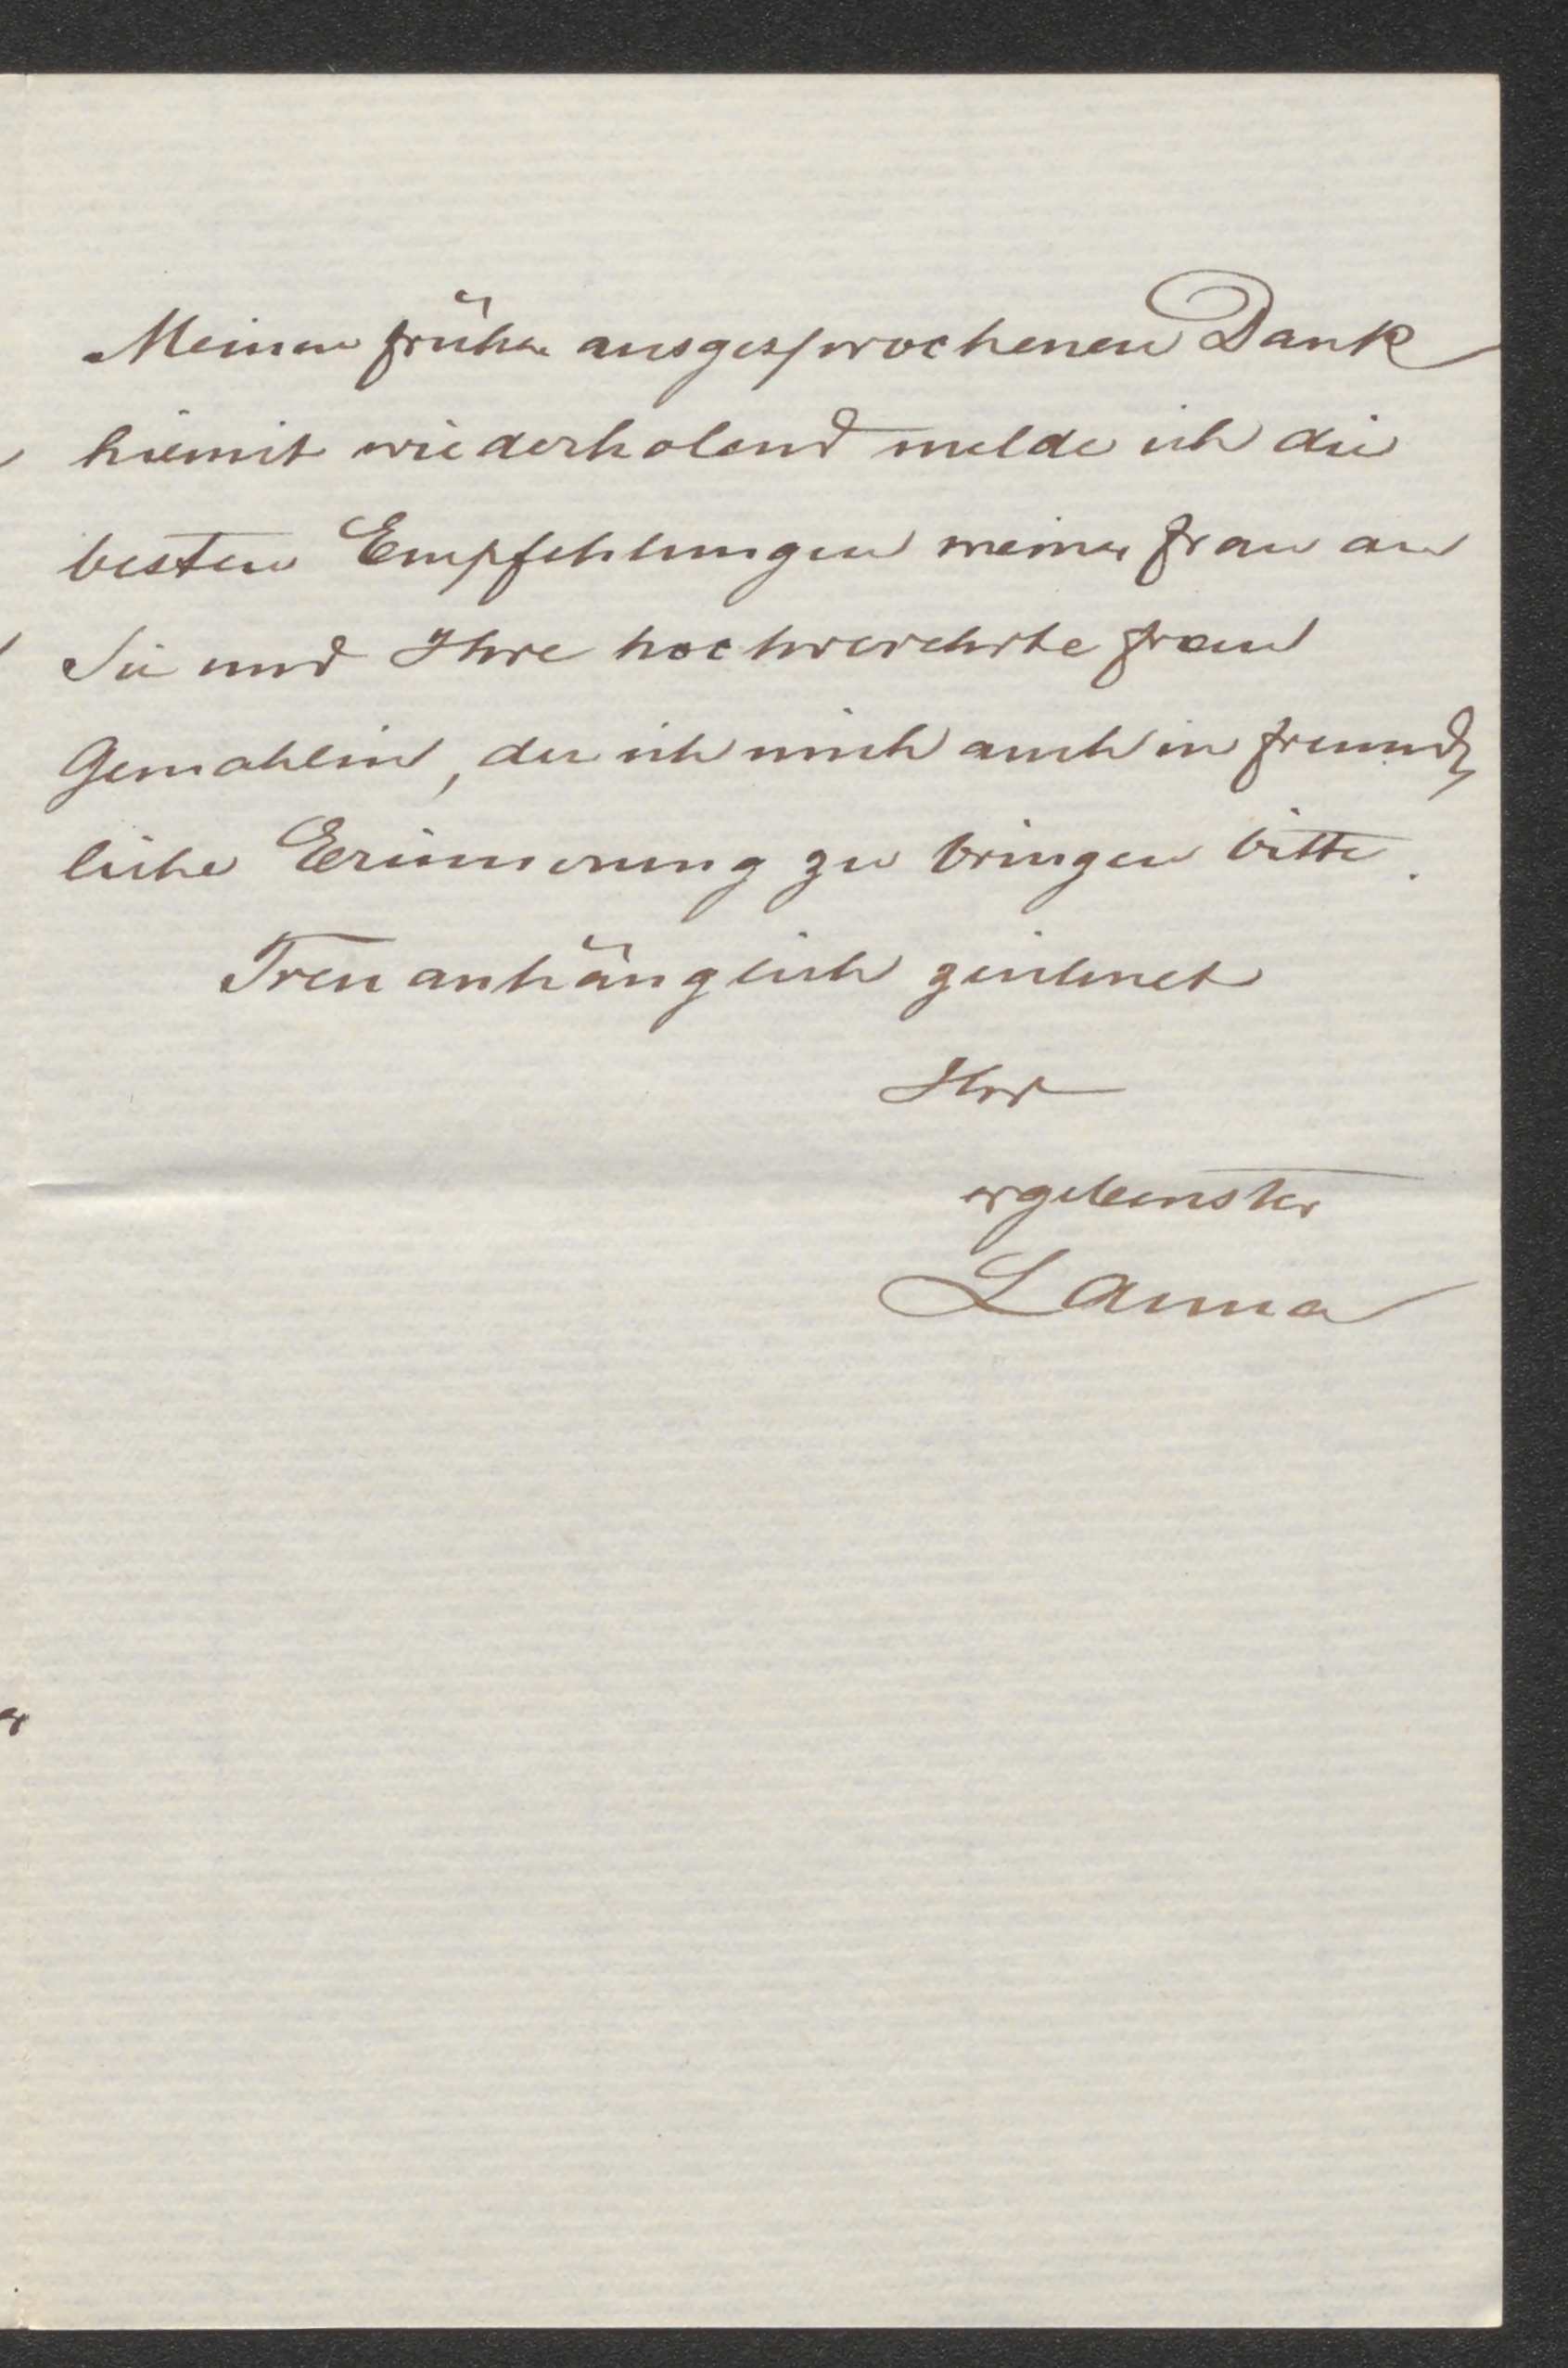 Meinen früher ausgesprochenen Dank
hiemit wiederholend melde ich die
besten Empfehlungen meiner Frau an
Sie und Ihre hochverehrte Frau
Gemahlin, der ich mich auch in freund-
liche Erinnerung zu bringen bitte.
Treu anhänglich zeichnet
Ihr
ergebenster
Lanna